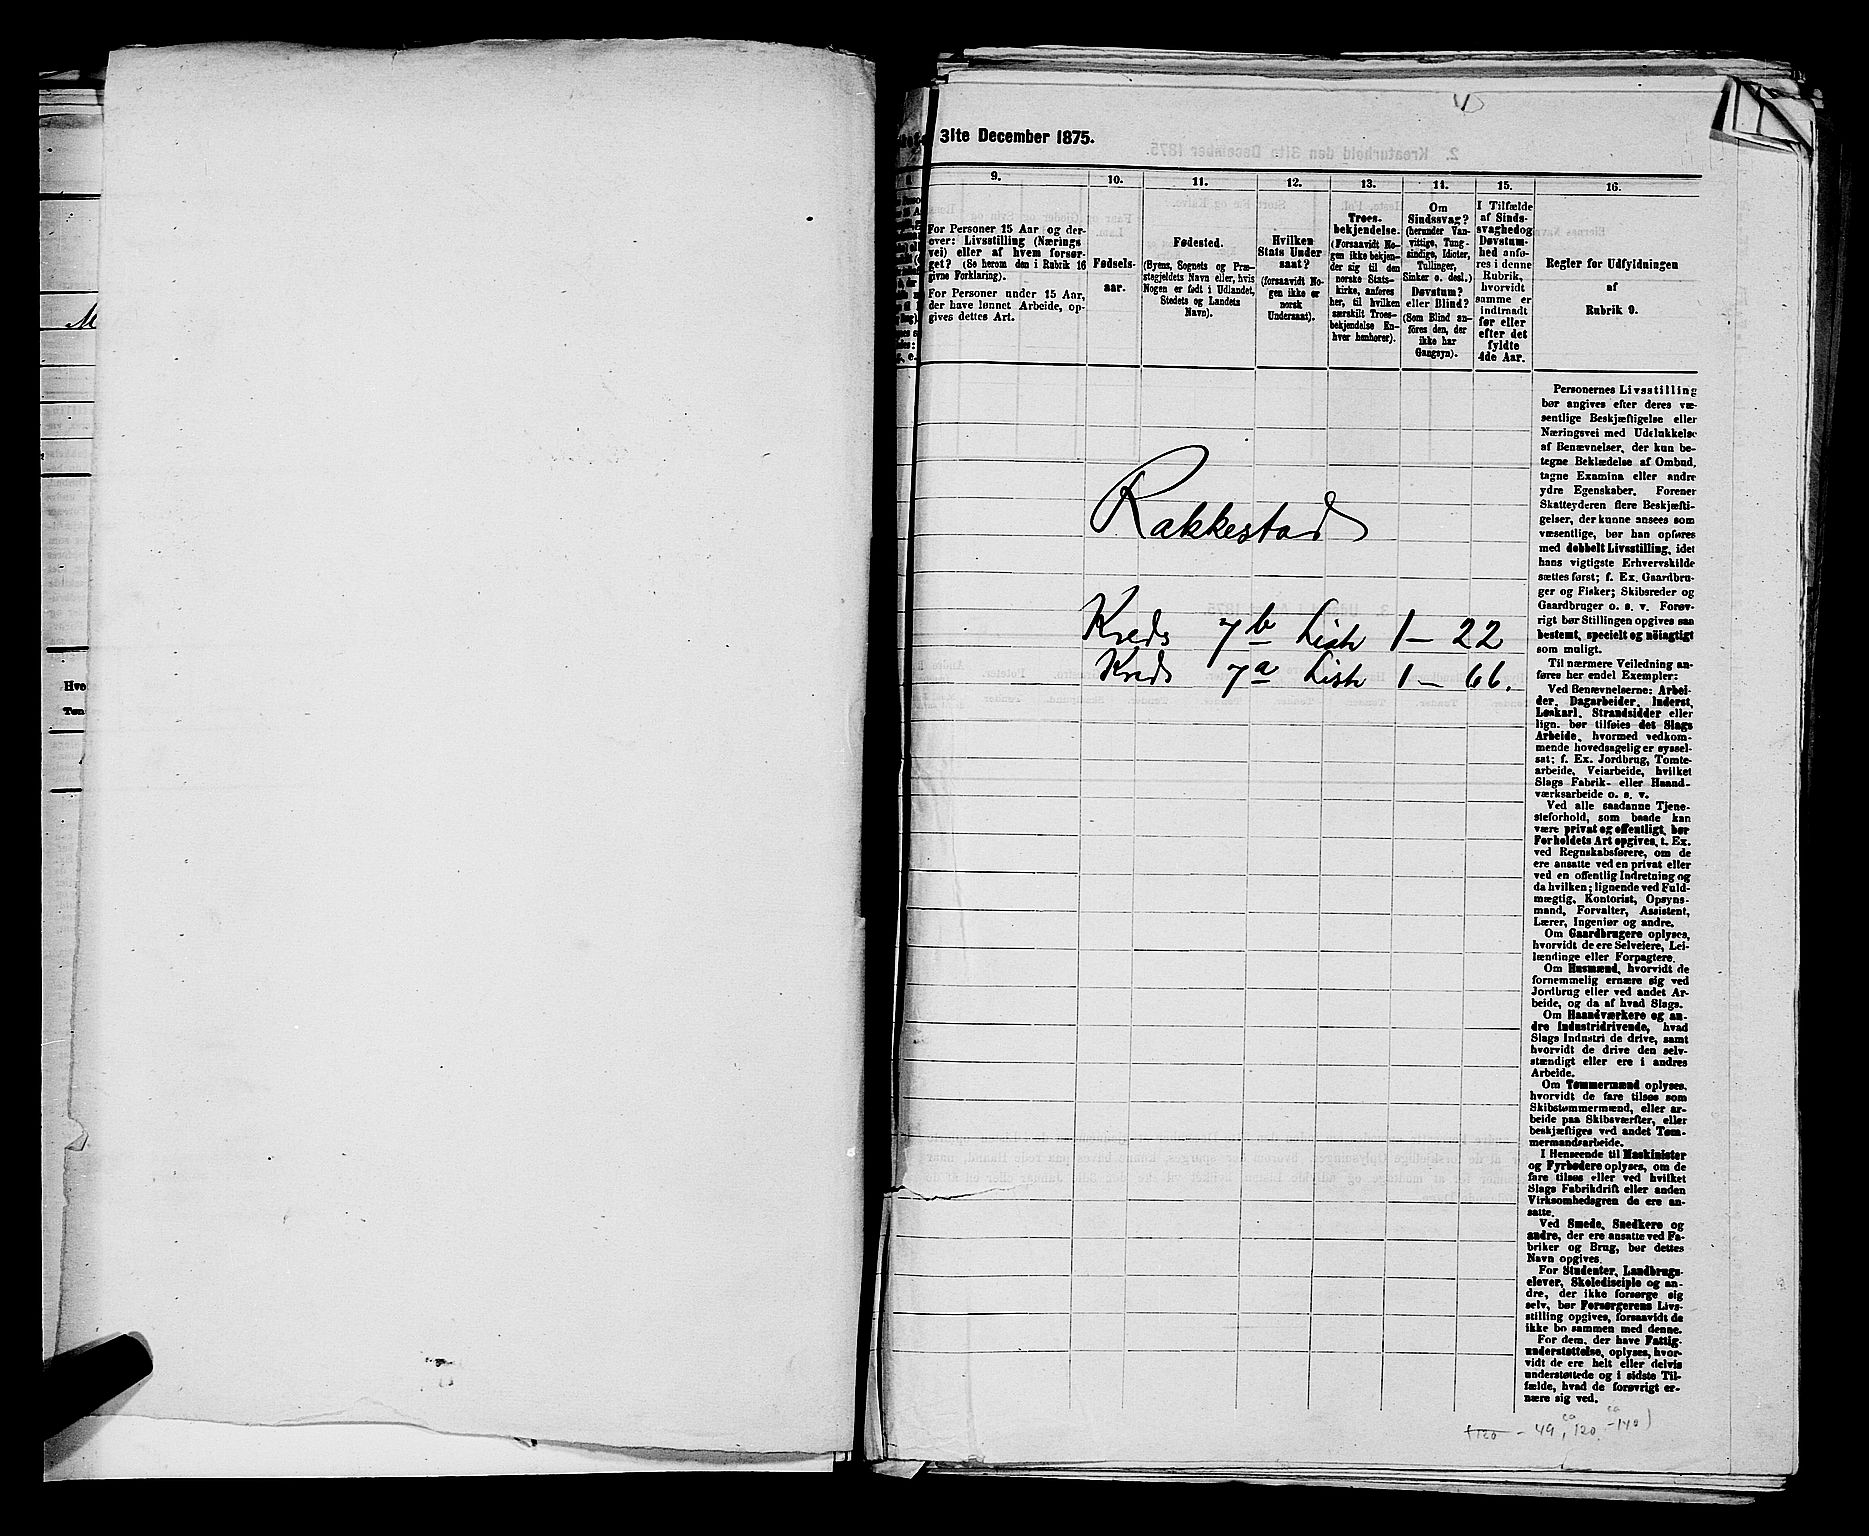 31te December 1875.
9.
For Personer 15 Aar og der-
over: Livsstilling (Nærings
vei) eller af hvem forsør-
get? (Se herom den i Rubrik 16
givne Forklaring).
For Personer under 15 Aar,
der have lønnet Arbeide, op-
gives dettes Art.
10.
Fødsels-
aar.
11.
Fødested.
(Byens, Sognets og Præ-
stegjeldets Navn eller, hvis
Nogen er født i Udlandet,
Stedets og Landets
Navn).
12.
Hvilken
Stats Under
saat?
(forsaavidt No-
gen ikke er
norsk
Undersaat).
13.
Troes-
bekjendelse.
(Forsaavidt No-
gen ikke bekjen-
der sig til den
norske Stats-
kirke, anføres
her, til hvilken
særskilt Troes-
bekjendelse En-
hver henhører).
14.
Om
Sindssvag?
(herunder Van-
vittige, Tung-
sindige, Idioter,
Tullinger,
Sinker o. desl.)
Døvstum?
eller Blind?
(Som Blind an-
føres den, der
ikke har
Gangsyn).
15.
I Tilfælde
af Sinds-
svaghed og
Døvstum-
hed anfø-
res i denne
Rubrik,
hvorvidt
samme er
indtraadt
før eller
efter det
fyldte
4de Aar.
16.
Regler for Udfyldningen
af
Rubrik 9.
Rakkestad
Kreds 7b Liste 1 – 22
Kreds 7a Liste 1 – 66.
Personernes Livsstilling
bør angives efter deres væ-
sentlige Beskjæftigelse eller
Næringsvei med Udelukkelse
af Benævnelser, der kun be-
tegne Beklædelse af Ombud,
tagne Examina eller andre
ydre Egenskaber. Forener
Skatteyderen flere Beskjæfti-
gelser, der kunne ansees som
væsentlige, bør han opføres
med dobbelt Livsstilling, idet
hans vigtigste Erhvervskilde
sættes først; f. Ex. Gaardbru-
ger og Fisker; Skibsreder og
Gaardbruger o. s. v. Forøv-
rigt bør Stillingen opgives saa
bestemt, specielt og nøiagtigt
som muligt.
Til nærmere Veiledning an-
føres her endel Exempler:
Ved Benævnelserne: Arbei-
der, Dagarbeider, Inderst,
Løskarl, Strandsidder eller
lign. bør tilføies det Slags
Arbeide, hvormed vedkom-
mende hovedsagelig er syssel-
sat; f. Ex. Jordbrug, Tomte-
arbeide, Veiarbeide, hvilket
Slags Fabrik- eller Haand-
værksarbeide o. s. v.
Ved alle saadanne Tjene-
steforhold, som baade kan
være privat og offentligt, bør
Forholdets Art opgives, t. Ex.
ved Regnskabsførere, om de
ere ansatte ved en privat eller
ved en offentlig Indretning og
da hvilken; lignende ved Fuld-
mægtig, Kontorist, Opsyns-
mand, Forvalter, Assistent,
Lærer, Ingeniør og andre.
Om Gaardbrugere oplyses,
hvorvidt de ere Selveiere, Lei-
lændinge eller Forpagtere.
Om Husmænd, hvorvidt de
fornemmelig ernære sig ved
Jordbrug eller ved andet Ar-
beide, og da af hvad Slags.
Om Haandværkere og an-
dre Industridrivende, hvad
Slags Industri de drive, samt
hvorvidt de drive den selv-
stændigt eller ere i andres
Arbeide.
Om Tømmermænd oplyses,
hvorvidt de fare tilsøs som
Skibstømmermænd, eller ar-
beide paa Skibsværfter, eller
beskjæftiges ved andet Tøm-
mermandsarbeide.
I Henseende til Maskinister
og Fyrbødere oplyses, om de
fare tilsøs eller ved hvilket
Slags Fabrikdrift eller anden
Virksomhedsgren de ere an-
satte.
Ved Smede, Snedkere og
andre, der ere ansatte ved Fa-
briker og Brug, bør dettes
Navn opgives.
For Studenter, Landbrugs-
elever, Skoledisciple og an-
dre, der ikke forsørge sig
selv, bør Forsørgerens Livs-
stilling opgives, forsaavidt de
ikke bo sammen med denne.
For dem, der have Fattig-
understøttelse, oplyses, hvor-
vidt de ere helt eller delvis
understøttede og i sidste Til-
fælde, hvad de forøvrigt er-
nære sig ved.